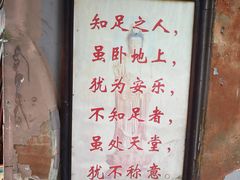 知足之人，
虽卧地上，
犹为安乐，
不知足者，
虽处天堂，
犹不称意。